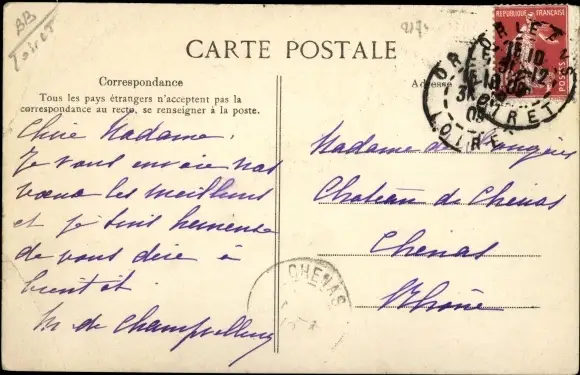 BB
Loiret
217
CARTE POSTALE
Correspondance
Tous les pays étrangers n'acceptent pas la
correspondance au recto, se renseigner à la poste.
Adresse
REPUBLIQUE FRANÇAISE
POSTES
ORLEANS
LOIRET
Chère Madame,
Je vous envoie nos
vœux les meilleurs
et je suis heureuse
de vous dire à
bientôt.
M de
Madame de
Chateau de Chénas
Chénas
Rhône
CHENAS